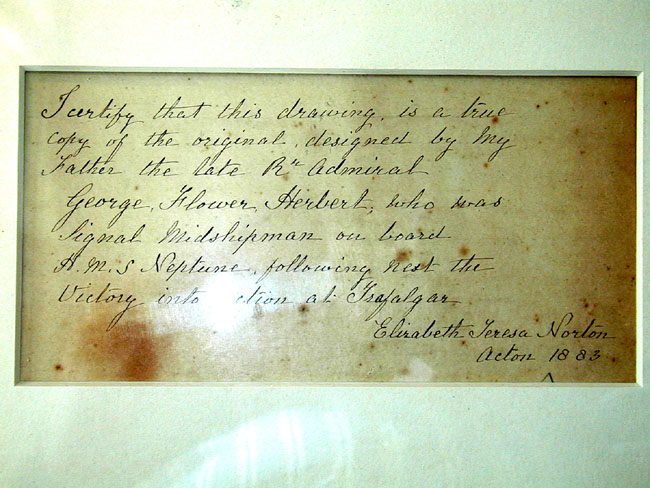 I certify that this drawing, is a true
copy of the original, designed by my
Father the late Rr Admiral
George, Flower, Herbert, who was
Signal Midshipman on board
H.M.S Neptune, following next the
Victory into ction at Trafalgar
Elizabeth Teresa Norton
Acton 1883